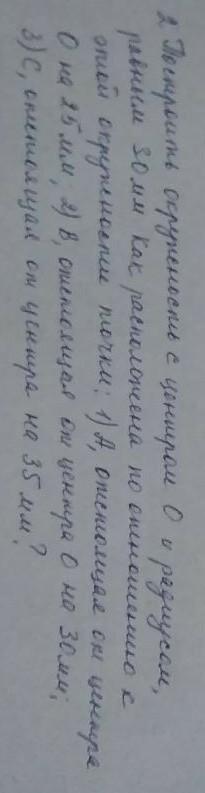 2. Построить окружность с центром О и радиусом,
равным 30 мм Как расположена по отношению к
этой окружности точки: 1) А, отстоящая от центра
О на 25 мм; 2) В, отстоящая от центра О на 30 мм;
3) С, отстоящая от центра на 35 мм?